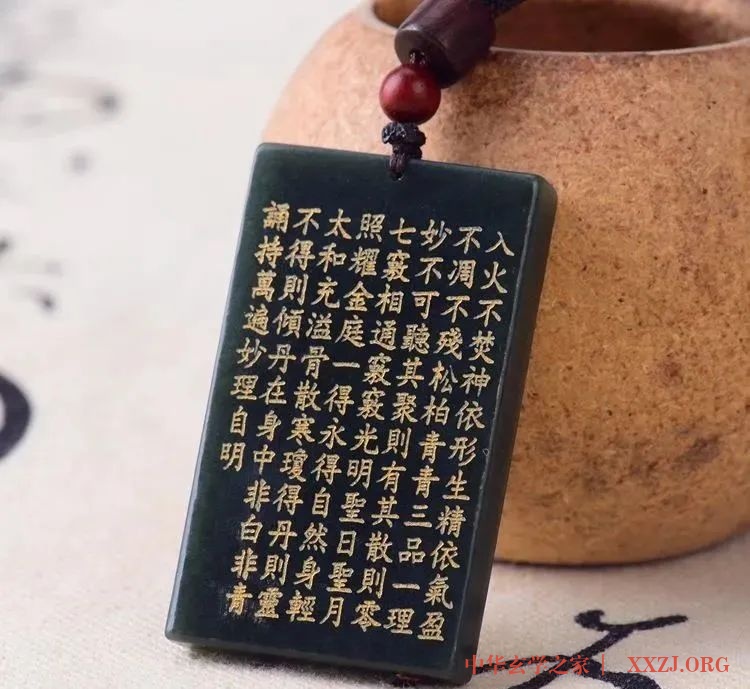 入火不焚神依形生精依氣盈
不凋不殘松柏青青三品一理
妙不可聽其聚則有其散則零
七竅相通竅竅光明聖日聖月
照耀金庭一得永得自然身輕
太和充溢骨散寒瓊得丹則靈
不得則傾丹在身中非白非青
誦持萬遍妙理自明
中华玄学之家丨 XXZJ.ORG